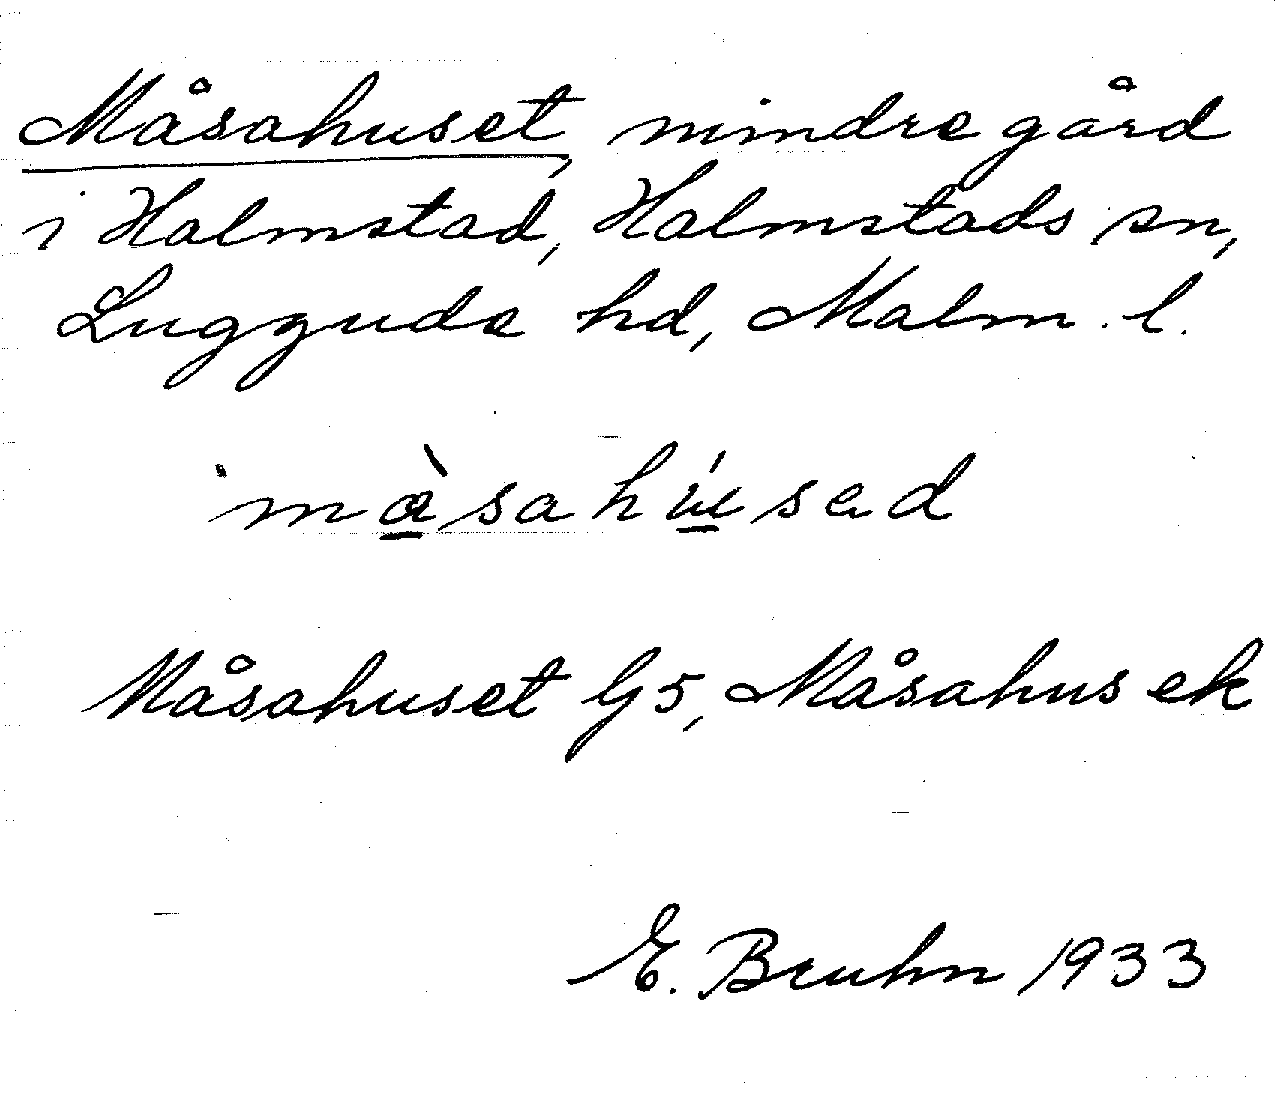 Måsahuset, mindre gård
i Halmstad, Halmstads sn,
Luggude hd, Malm. l.
mὰ̠sahú̠sed
Måsahuset G5, Måsahus ek
E. Bruhn 1933